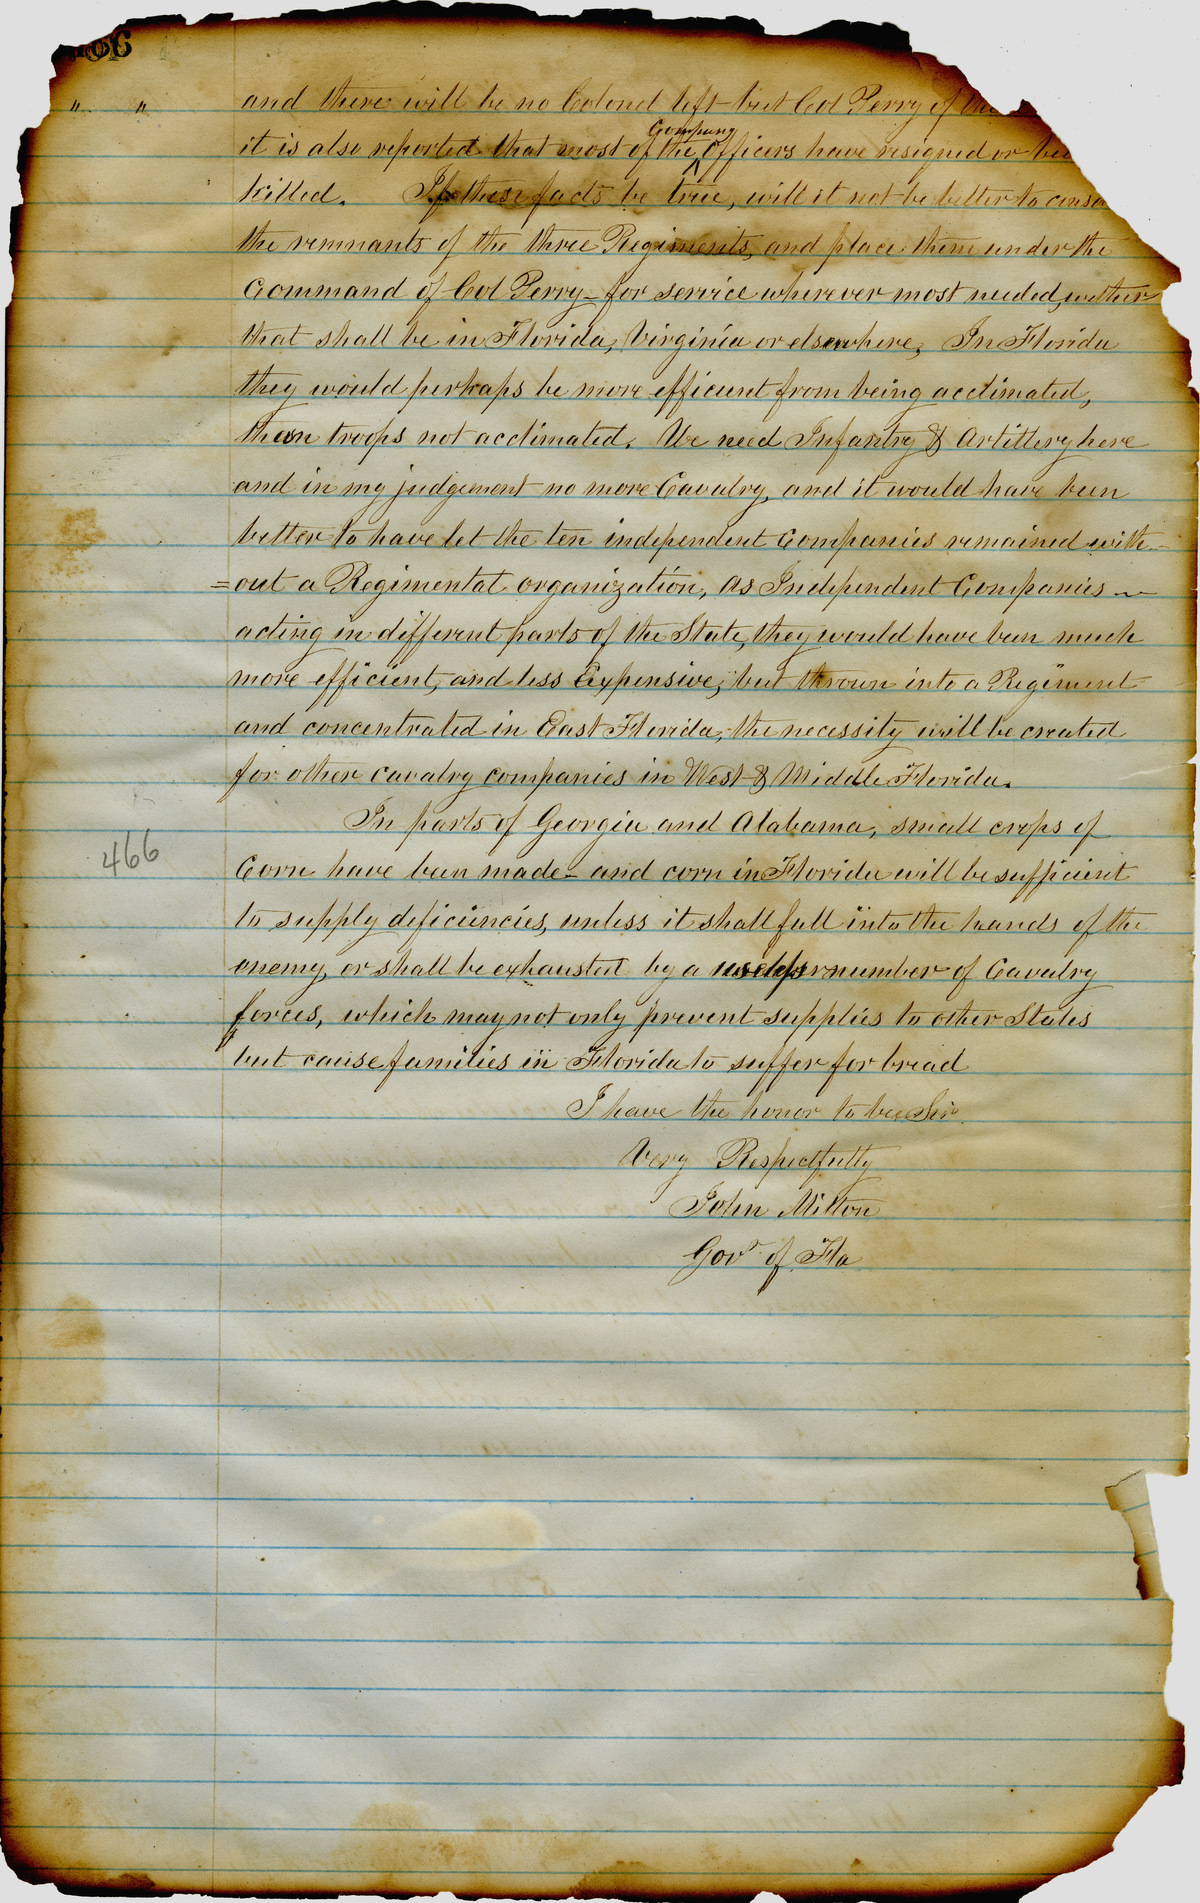 " " and there will be no Colonel left but Col Perry of the
Company
it is also reported that most of the Officers have resigned or
killed. If these facts be true, will it not be better to
the remnants of the three Regiments, and place them under the
Command of Col Perry – for service wherever most needed, wether
that shall be in Florida, Virginia or elsewhere, In Florida
they would perhaps be more efficient from being acclimated,
then troops not acclimated. We need Infantry & Artillery here
and in my judgement no more Cavalry, and it would have been
better to have let the ten independent Companies remained with-
=out a Regimental organization, As Independent Companies
acting in different parts of the State, they would have been much
more efficient, and less Expensive, but thrown into a Regiment
and concentrated in East Florida, the necessity will be created
for other cavalry companies in West & Middle Florida.
In parts of Georgia and Alabama, small crops of
466
Corn have been made – and corn in Florida will be sufficient
to supply deficiencies, unless it shall fall into the hands of the
enemy, or shall be exhausted by a useless number of Cavalry
forces, which may not only prevent supplies to other States
but cause families in Florida to suffer for bread
I have the honor to be Sir
Very Respectfully
John Milton
Govr of Fla